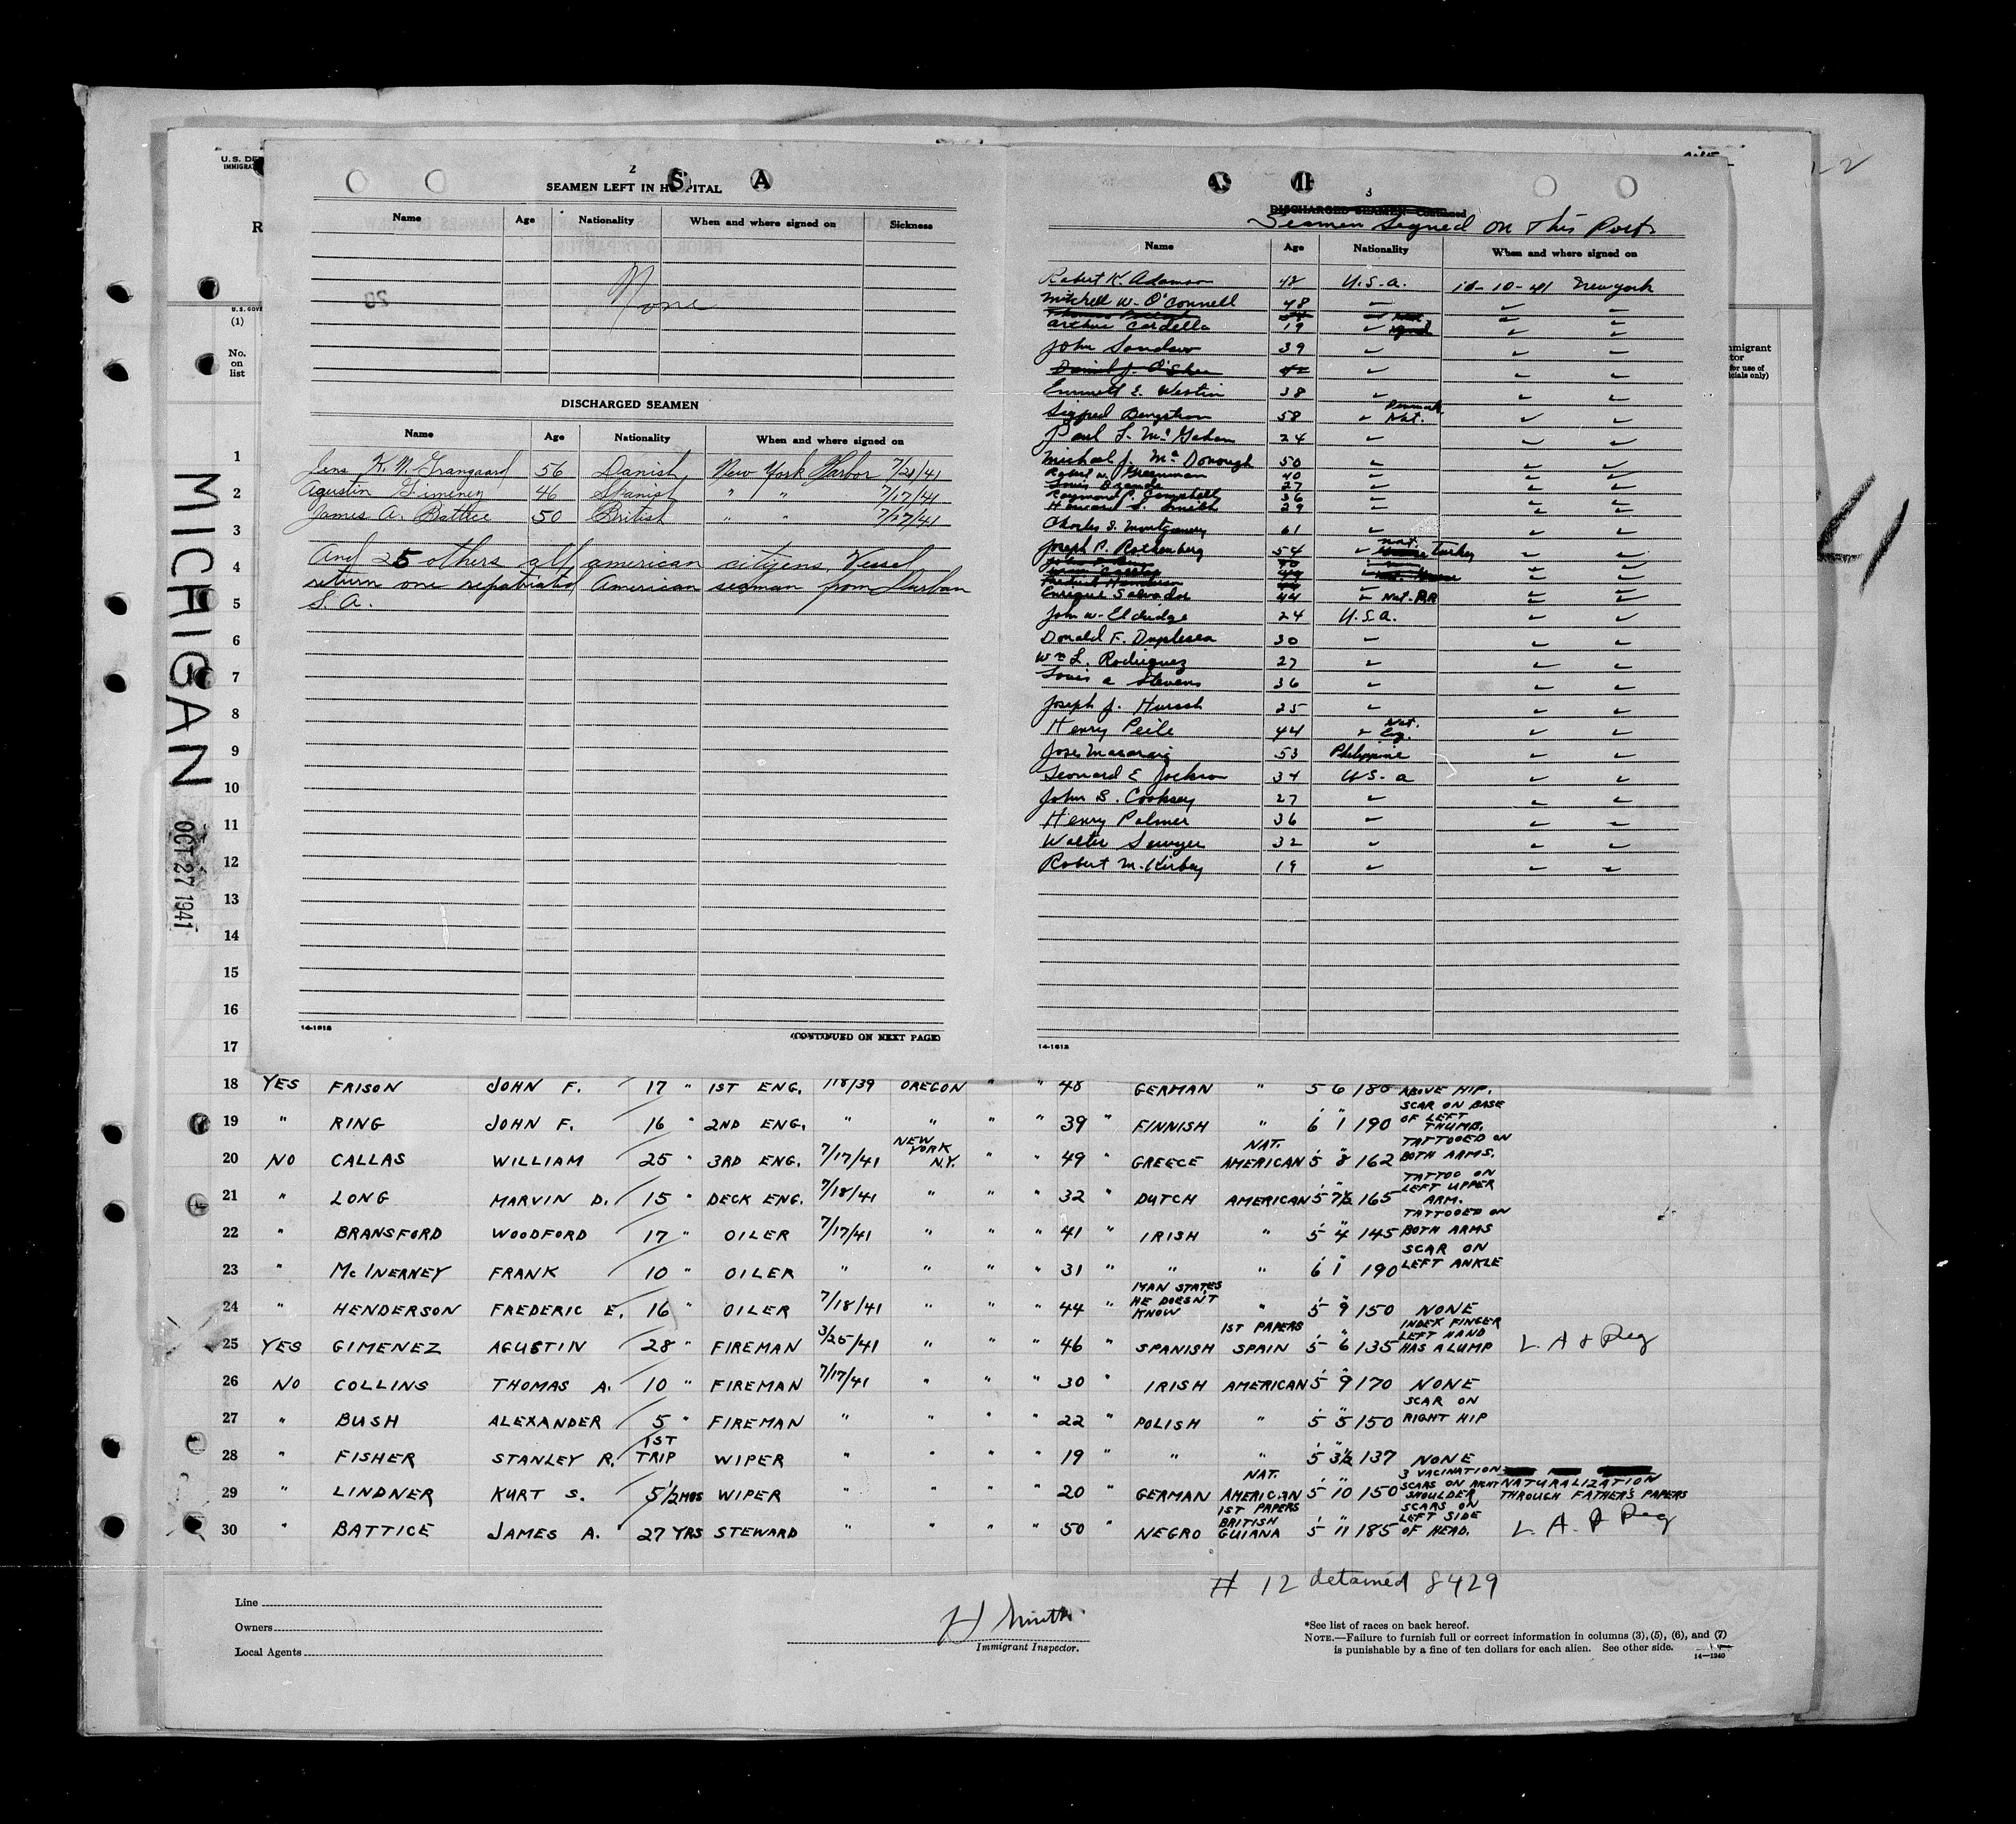 22
4
MICHIGAN
OCT 27 1941
U.S. DE
IMMIGRA
R
U. S. GOVE
(1)
No.
on
list
mmigrant
tor
for use of
cials only)
2
SEAMEN LEFT IN HOSPITAL
S A
Name Age Nationality When and where signed on Sickness
None
20
DISCHARGED SEAMEN
Name Age Nationality When and where signed on
Jens K. N. Grangaard 56 Danish New York Harbor 7/21/41
Agustin Gimenez 46 Spanish " " 7/17/41
James A. Battice 50 British " " 7/17/41
And 25 others all american citizens. Vessel
return one repatriated American seaman from Durban
S. A.
14-1612
(CONTINUED ON NEXT PAGE)
3
DISCHARGED SEAMEN—Continued
Seamen Signed on this Port
Name Age Nationality When and where signed on
Robert K. Adamson 42 U.S.a. 10-10-41 Newyork
Mitchell W. O'Connell 48 ✓ ✓ ✓
Arthur Cardella 19 ✓ ✓ ✓
John Sandow 39 ✓ ✓ ✓
Daniel J. O'Shea 42 ✓ ✓ ✓
Emmett E. Westin 38 ✓ ✓ ✓
Sigfred Bengston 58 ✓ Denmark Nat. ✓ ✓
Paul L. McGahan 24 ✓ ✓ ✓
Michael J. McDonough 50 ✓ ✓ ✓
Robert W. Greenman 40 ✓ ✓ ✓
Louis 27 ✓ ✓ ✓
Raymond P. Campbell 36 ✓ ✓ ✓
Howard S. Smith 29 ✓ ✓ ✓
Charles S. Montgomery 61 ✓ ✓ ✓
Joseph P. Rothenberg 54 ✓ nat. Turkey ✓ ✓
Enrique Salvador 44 ✓ Nat. PR ✓ ✓
John W. Eldridge 24 U.S.a. ✓ ✓
Donald F. Duplesea 30 ✓ ✓ ✓
Wm L. Rodriguez 27 ✓ ✓ ✓
Louis a Stevens 36 ✓ ✓ ✓
Joseph J. Hursh 25 ✓ ✓ ✓
Henry Peile 44 ✓ Nat. Eng. ✓ ✓
Jose Masaraig 53 Philippine ✓ ✓
Leonard E Jackson 34 U.S.a ✓ ✓
John B. Cooksey 27 ✓ ✓ ✓
Henry Palmer 36 ✓ ✓ ✓
Walter Sawyer 32 ✓ ✓ ✓
Robert M. Kirbey 19 ✓ ✓ ✓
14-1612
1
2
3
4
5
6
7
8
9
10
11
12
13
14
15
16
17
18 YES FRISON JOHN F. 17 " 1ST ENG. 118/39 OREGON " " 48 GERMAN " 5 6 180 ABOVE HIP.
19 " RING JOHN F. 16 " 2ND ENG. " " " " 39 " FINNISH " 6 1 190 SCAR ON BASE OF LEFT THUMB.
20 NO CALLAS WILLIAM 25 " 3RD ENG. 7/17/41 NEW YORK N.Y. " " 49 " GREECE NAT. AMERICAN 5 8 162 TATTOOED ON BOTH ARMS.
21 " LONG MARVIN D. 15 " DECK ENG. 7/18/41 " " " 32 " DUTCH AMERICAN 5 7½ 165 TATTOO ON LEFT UPPER ARM.
22 " BRANSFORD WOODFORD 17 " OILER 7/17/41 " " " 41 " IRISH " 5 4 145 TATTOOED ON BOTH ARMS
23 " McINERNEY FRANK 10 " OILER " " " " 31 " " " 6 1 190 SCAR ON LEFT ANKLE
24 " HENDERSON FREDERIC E. 16 " OILER 7/18/41 " " " 44 " MAN STATES HE DOESN'T KNOW " 5 9 150 NONE
25 YES GIMENEZ AGUSTIN 28 " FIREMAN 3/25/41 " " " 46 " SPANISH 1ST PAPERS SPAIN 5 6 135 INDEX FINGER LEFT HAND HAS A LUMP L. A & Reg
26 NO COLLINS THOMAS A. 10 " FIREMAN 7/17/41 " " " 30 " IRISH AMERICAN 5 9 170 NONE
27 " BUSH ALEXANDER 5 " FIREMAN " " " " 22 " POLISH " 5 5 150 SCAR ON RIGHT HIP
28 " FISHER STANLEY R. 1ST TRIP WIPER " " " " 19 " " " 5 3½ 137 NONE
29 " LINDNER KURT S. 5½ MOS WIPER " " " " 20 " GERMAN NAT. AMERICAN 5 10 150 3 VACINATION SCARS ON RIGHT SHOULDER NATURALIZATION THROUGH FATHER'S PAPERS
30 " BATTICE JAMES A. 27 YRS STEWARD " " " " 50 " NEGRO 1ST PAPERS BRITISH GUIANA 5 11 185 SCARS ON LEFT SIDE OF HEAD. L. A. & Reg
# 12 detained 8429
Line
Owners
Local Agents
H Smith
Immigrant Inspector.
*See list of races on back hereof.
NOTE.—Failure to furnish full or correct information in columns (3), (5), (6), and (7)
is punishable by a fine of ten dollars for each alien. See other side.
14—1240